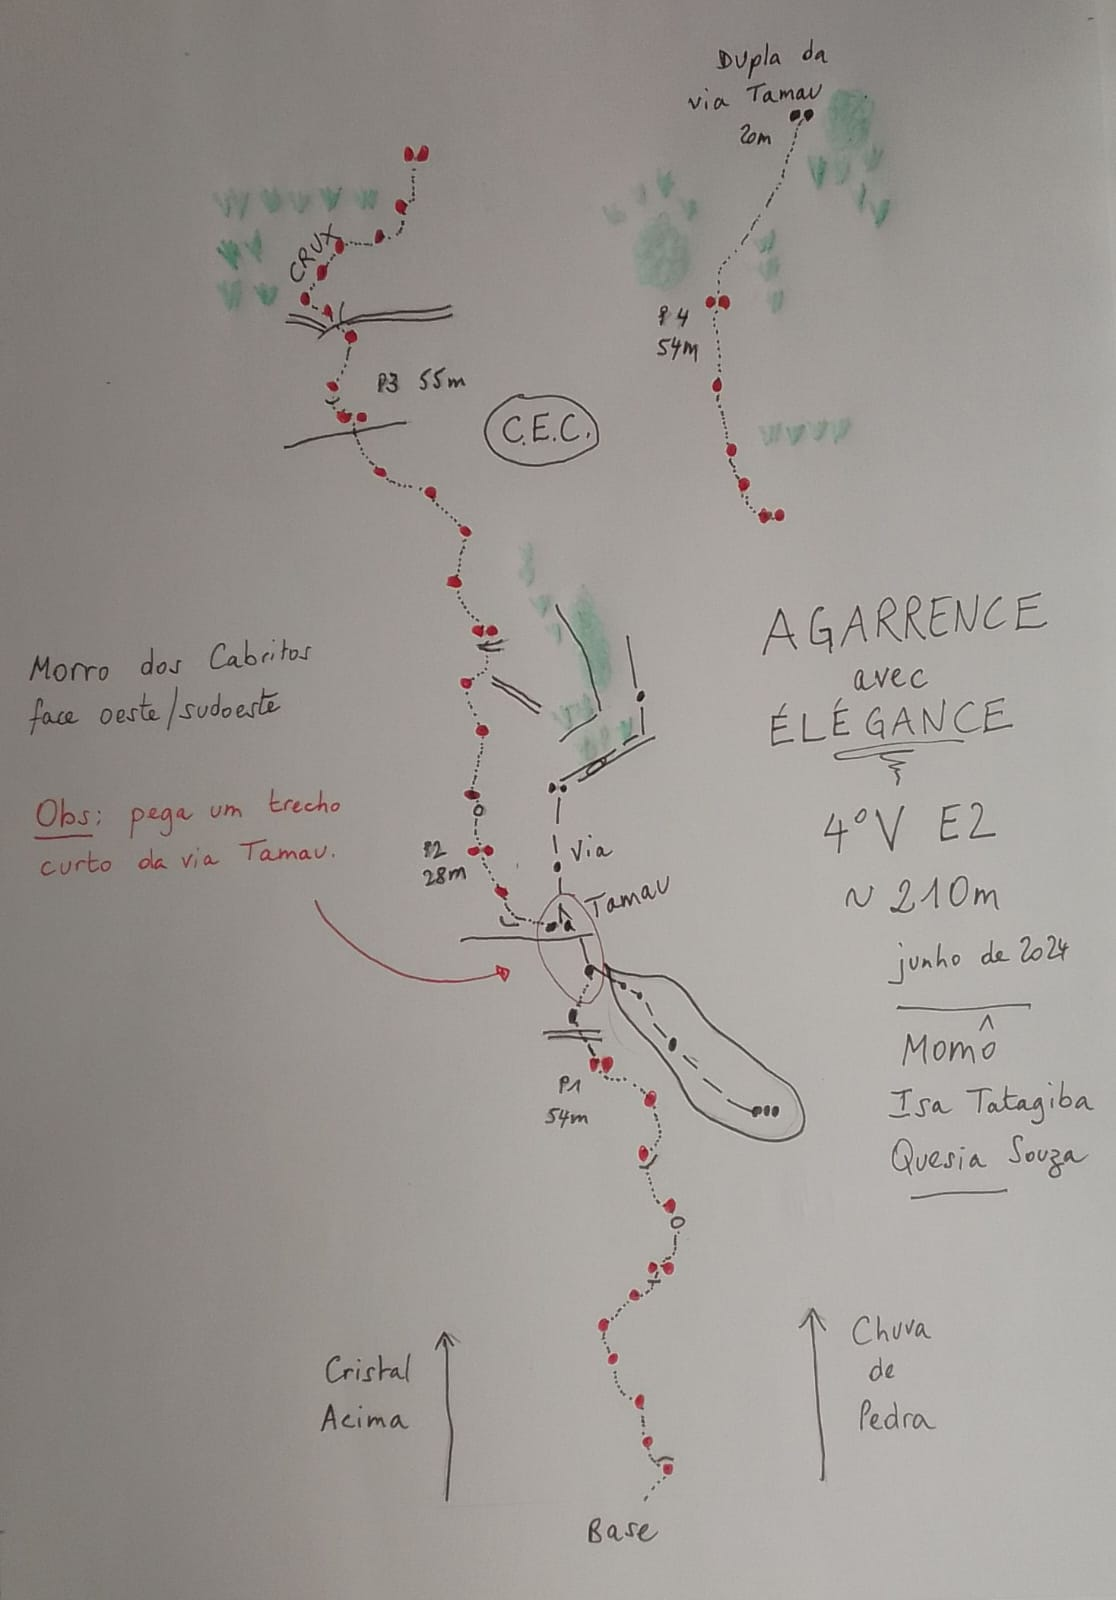 Dupla da
via Tamau
20m
CRUX
P4
54m
P3 55m
C.E.C.
AGARRENCE
avec
ÉLÉGANCE
Morro dos Cabritos
face oeste/sudoeste
Obs: pega um trecho
curto da via Tamau.
4º V E2
~ 210m
junho de 2024
Momô
Isa Tatagiba
Quesia Souza
P2
28m
Via
Tamau
P1
54m
Cristal
Acima
Chuva
de
Pedra
Base